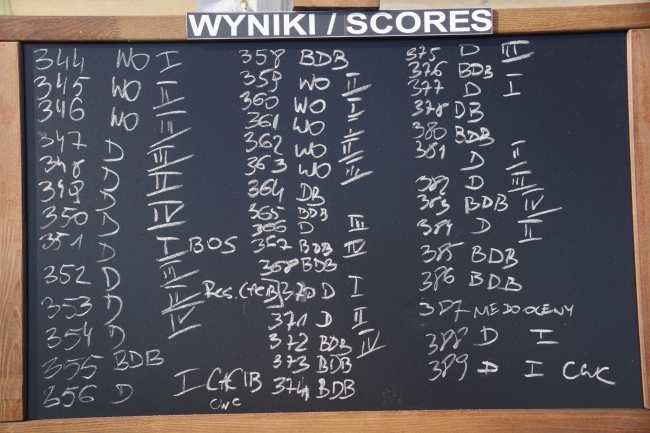 WYNIKI / SCORES
344 WO I
345 WO II
346 WO III
347 D III
348 D II
349 D IV
350 D
351 D I BOS
352 D II
353 D III
354 D IV
355 BDB
356 D I CACIB
CWC
358 BDB
359 WO II
360 WO I
361 WO
362 WO II
363 WO III
364 DB
365 BDB
366 D III
367 BDB IV
368 BDB
Res. CACIB 370 D I
371 D II
372 BDB IV
373 BDB
374 BDB
375 D III
376 BDB
377 D I
378 DB
380 BDB
381 D II
382 D III
383 BDB IV
384 D II
385 BDB
386 BDB
387 NIEDOOCENY
388 D I
389 D I CWC